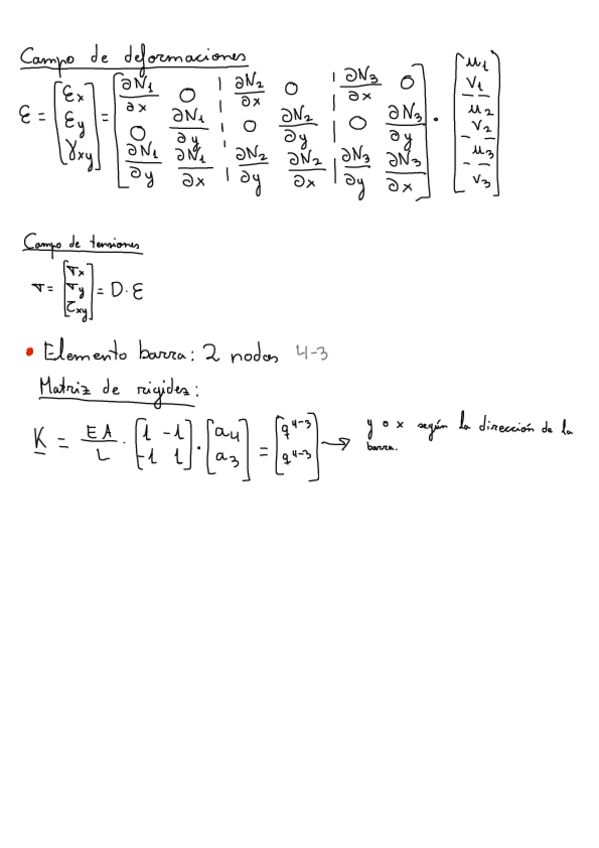 Campo de deformaciones
ε = [εx; εy; γxy] = [∂N1/∂x 0 | ∂N2/∂x 0 | ∂N3/∂x 0; 0 ∂N1/∂y | 0 ∂N2/∂y | 0 ∂N3/∂y; ∂N1/∂y ∂N1/∂x | ∂N2/∂y ∂N2/∂x | ∂N3/∂y ∂N3/∂x] · [u1; v1; u2; v2; u3; v3]
Campo de tensiones
σ = [σx; σy; τxy] = D·ε
• Elemento barra: 2 nodos 4-3
Matriz de rigidez:
K = EA/L · [1 -1; -1 1] · [a4; a3] = [q^4-3; q^4-3] → y o x según la dirección de la
barra.